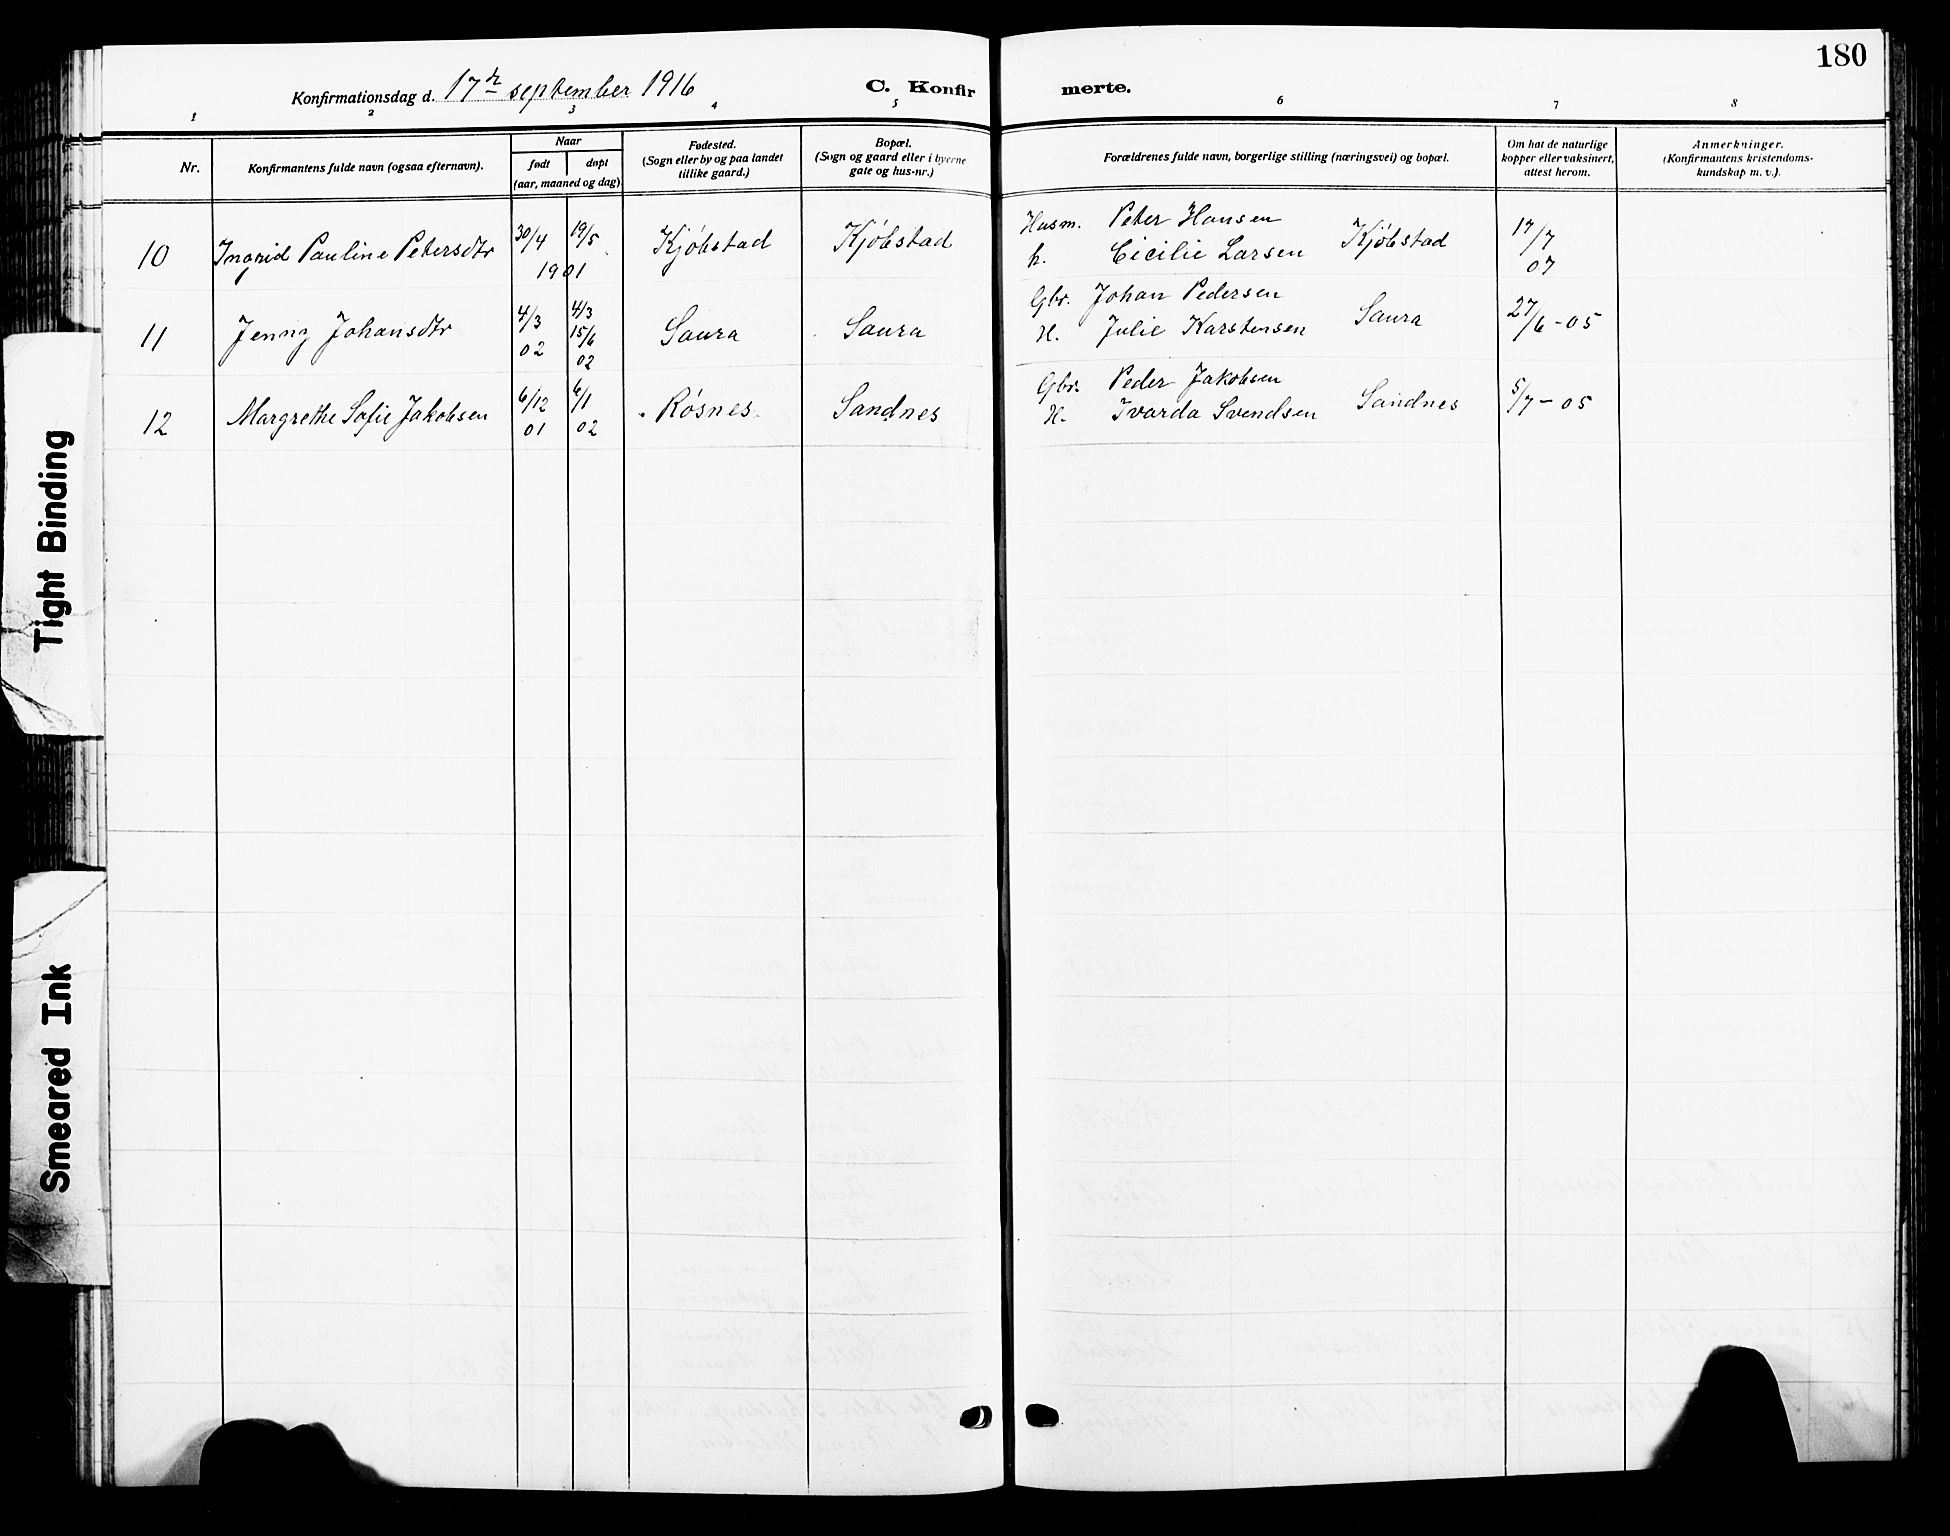 180
Konfirmationsdag d. 17de september 1916
C. Konfir
merte.
1 2 3 4 5 6 7 8
Nr.
Konfirmantens fulde navn (ogsaa efternavn).
Naar
født døpt
(aar, maaned og dag)
Fødested.
(Sogn eller by og paa landet
tillike gaard.)
Bopæl.
(Sogn og gaard eller i byerne
gate og hus-nr.)
Forældrenes fulde navn, borgerlige stilling (næringsvei) og bopæl.
Om hat de naturlige
kopper eller vaksinert,
attest herom.
Anmerkninger.
(Konfirmantens kristendoms-
kundskap m. v.).
10 Ingrid Pauline Petersdtr 30/4 19/5 1901 Kjøbstad Kjøbstad Husm. Peter Hansen
h. Cicilie Larsen Kjøbstad 17/7 07
11 Jenny Johansdtr 4/3 02 4/3 15/6 02 Saura Saura Gbr. Johan Pedersen
H. Julie Karstensen Saura 27/6-05
12 Margrethe Sofie Jakobsen 6/12 01 6/1 02 Røsnes Sandnes Gbr. Peder Jakobsen
H. Ivarda Svendsen Sandnes 5/7-05
Tight Binding
Smeared Ink